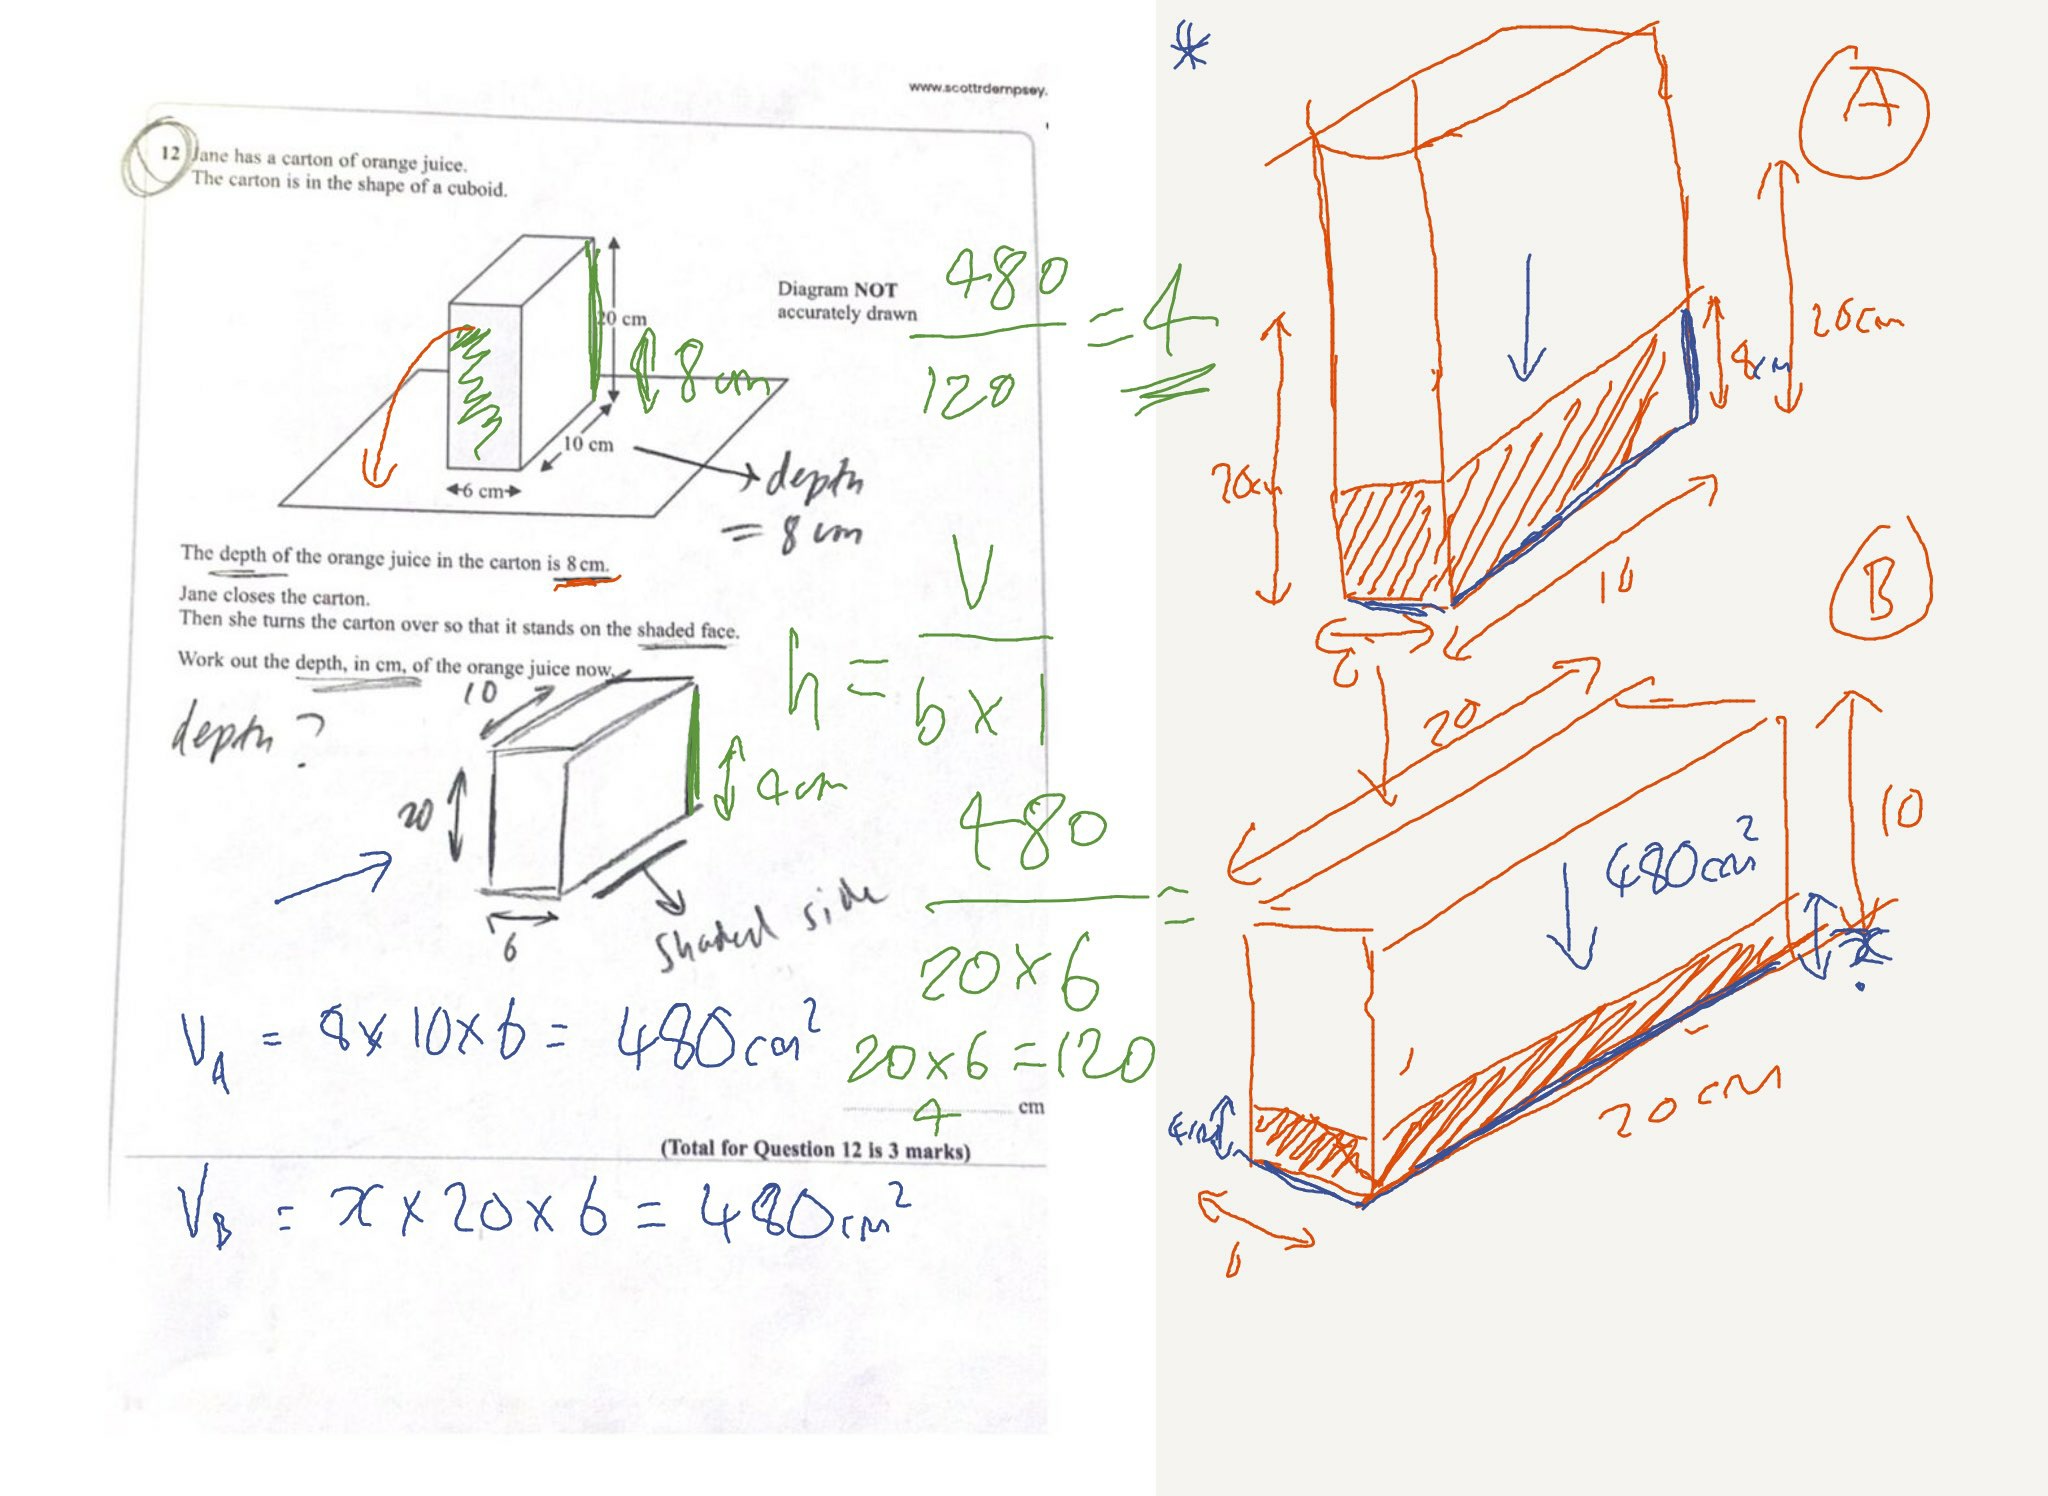 www.scottrdempsey.
12 Jane has a carton of orange juice.
The carton is in the shape of a cuboid.
Diagram NOT
accurately drawn
20 cm
8 cm
10 cm
6 cm
depth
= 8 cm
480
120
= 4
The depth of the orange juice in the carton is 8 cm.
Jane closes the carton.
Then she turns the carton over so that it stands on the shaded face.
Work out the depth, in cm, of the orange juice now.
depth?
10
20
6
4cm
shaded side
h =
V
b × l
480
20×6
=
20×6=120
V_A = 8 × 10 × 6 = 480cm²
4 cm
(Total for Question 12 is 3 marks)
V_B = x × 20 × 6 = 480cm²
*
A
20cm
8cm
20cm
10
6
B
20
10
480cm²
x
20cm
4cm
6